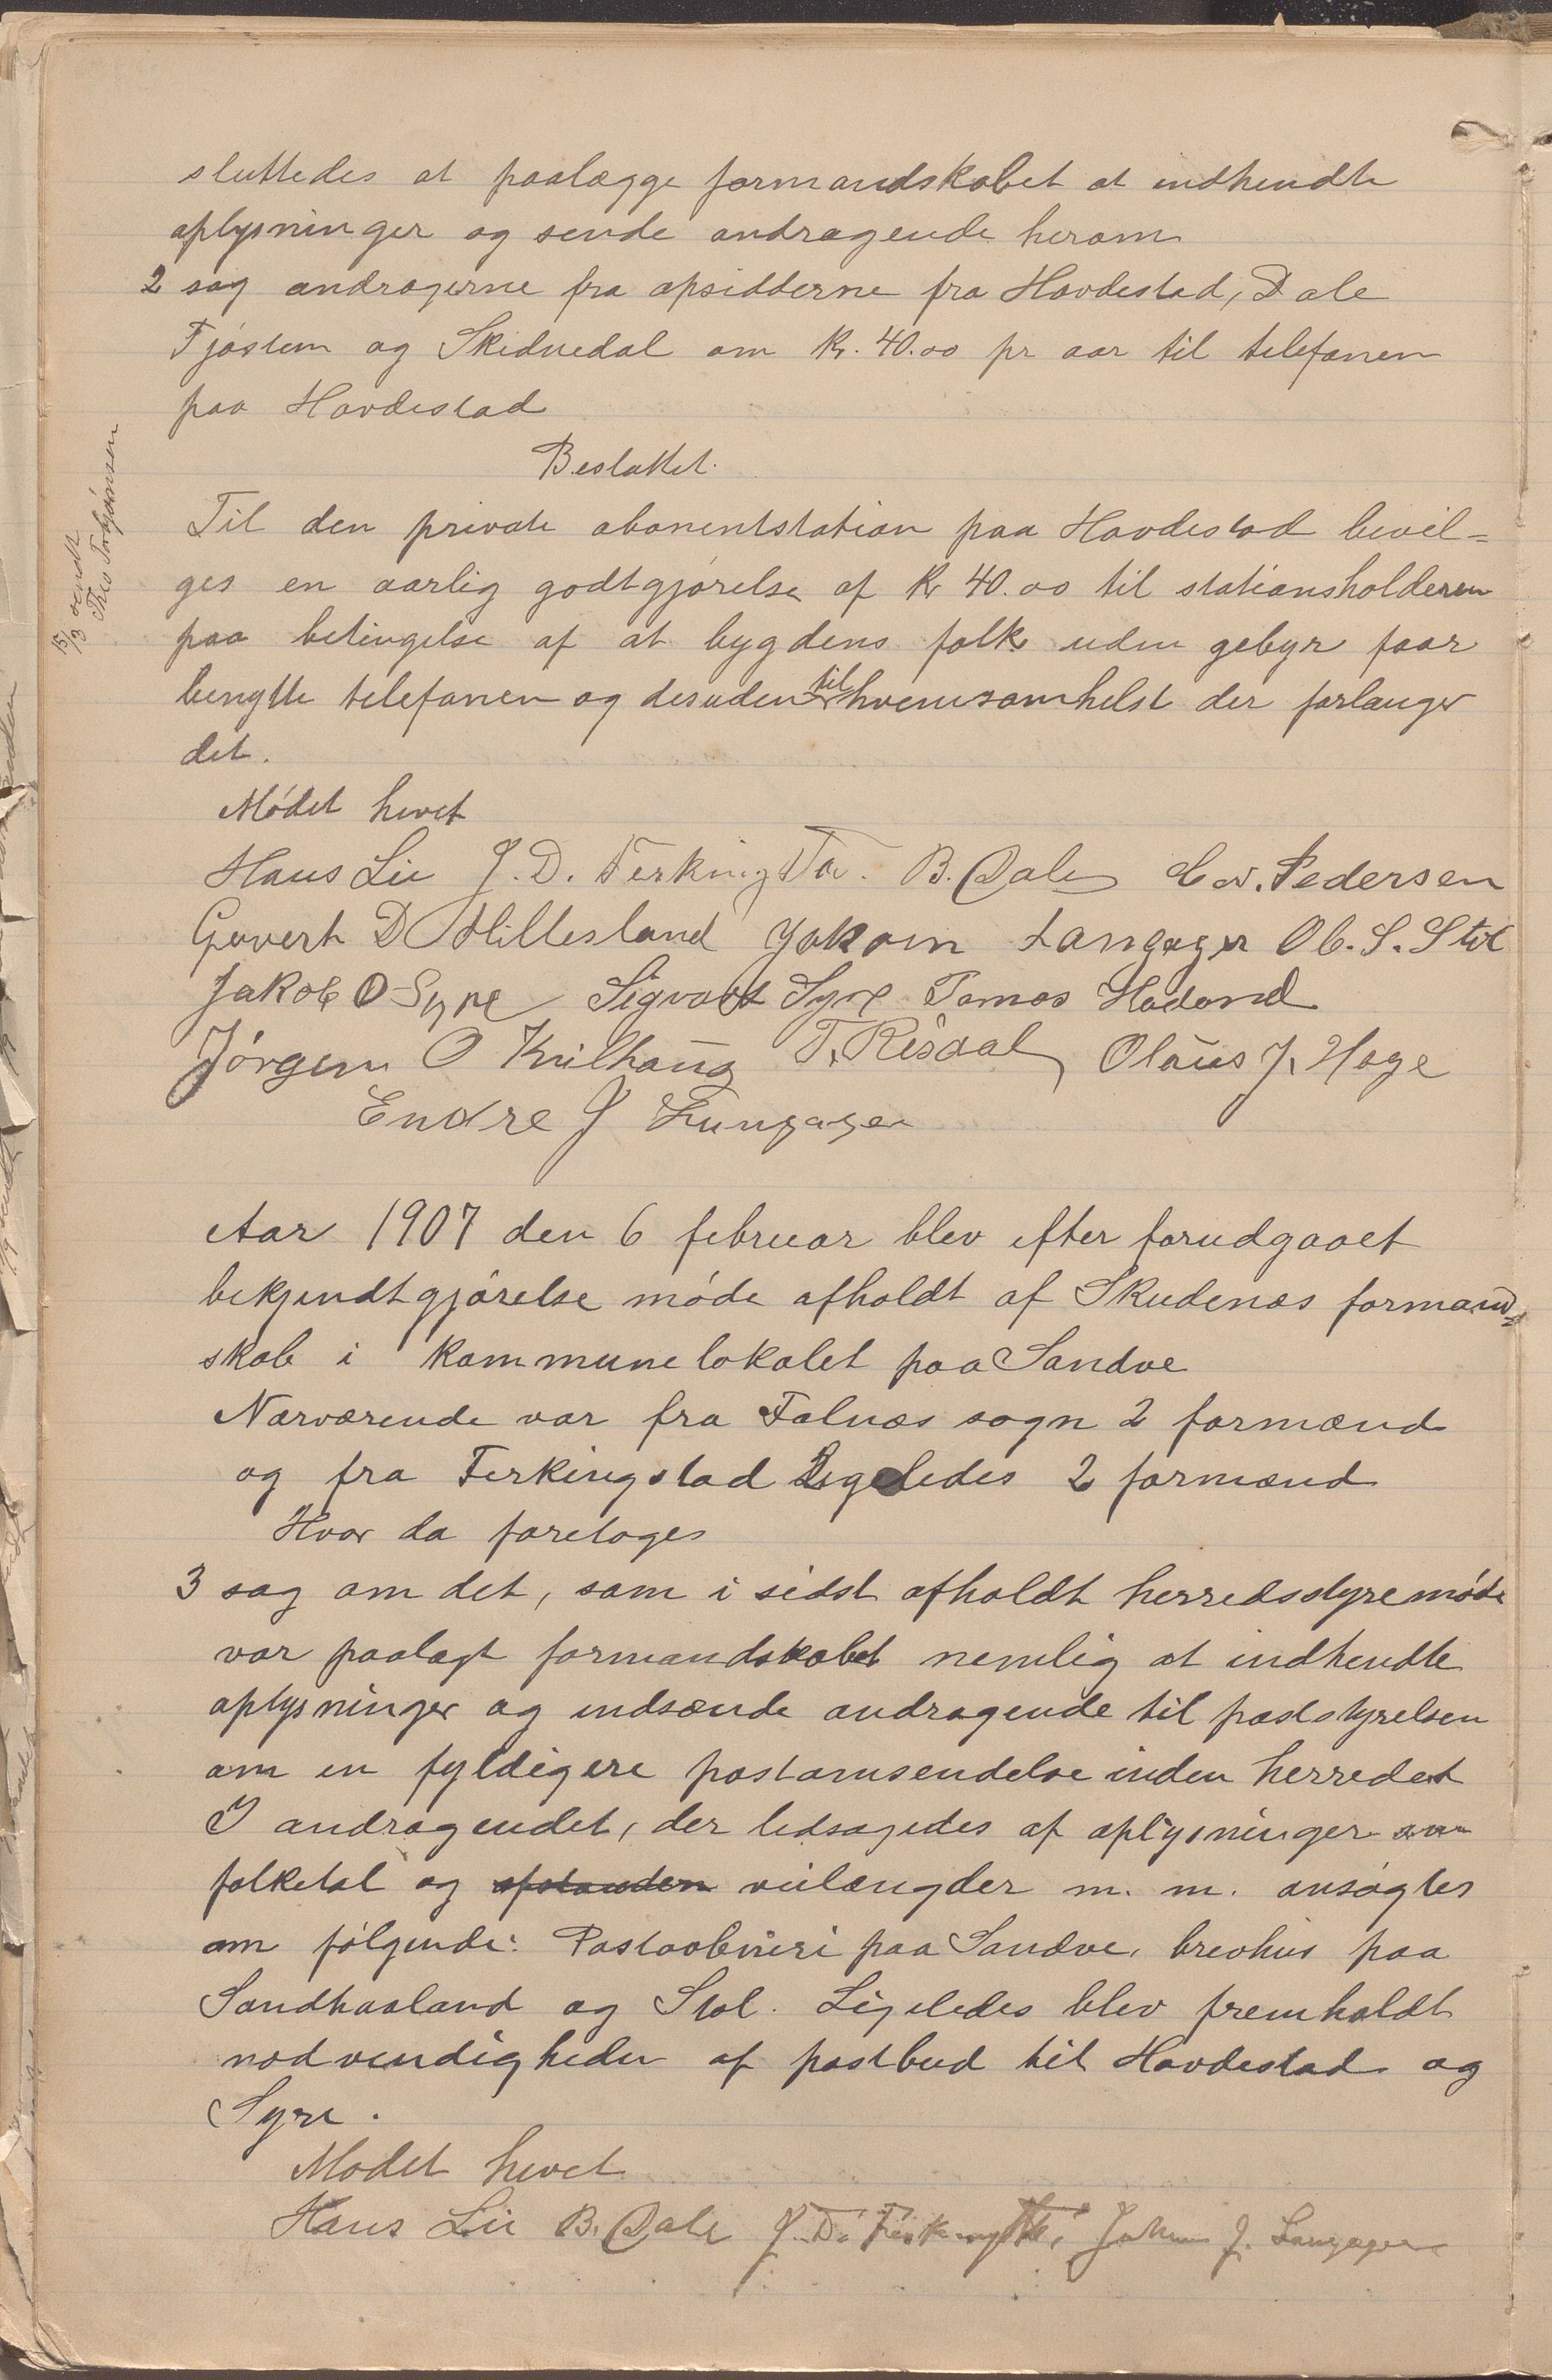 sluttedes at paalægge formandskabet at indhendte
oplysninger og sende andragende herom
2 sag andragerne fra opsidderne fra Hovdestad, Dale
Fjøslem og Skidnedal om kr. 40.00 pr aar til telefonen
paa Hovdestad
Besluttet.
Til den private abonentstation paa Hovdestad bevil=
ges en aarlig godtgjørelse af kr 40.00 til stationsholderen
paa betingelse af at bygdens folk uden gebyr faar
benytte telefonen og desuden til hvemsomhelst der forlanger
det.
Mødet hevet
Hans Lie J. D. Ferkingsta. B. Dale Pedersen
Govert D Hillesland Jakom Langager Ob. S. Stol
Jakob O Syre Sigvart Syre Tomas Hadland
Jørgen O Kvilhaug T. Risdal Olaus J. Hage
Endre J Lungager
15/3 sendt
Theo Torbjørnsen
Aar 1907 den 6 februar blev efter forudgaaet
bekjendtgjørelse møde afholdt af Skudenæs formand=
skab i kommunelokalet paa Sandve
Nærværende var fra Falnæs sogn 2 formænd
og fra Ferkingstad Ligeledes 2 formænd
Hvor da foretoges
3 sag om det, som i sidst afholdt herredsstyremøde
var paalagt formandskabet nemlig at indhendte
oplysninger og indsænde andragende til poststyrelsen
om en fyldigere postomsendelse inden herredet
I andragendet, der ledsagedes af oplysninger om
folketal og afstanden veilængder m. m. ansøgtes
om følgende: Postaabneri paa Sandve, brevhus paa
Sandhaaland og Stol. Ligeledes blev fremholdt
nødvendigheden af postbud til Hovdestad og
Syre.
Mødet hevet
Hans Lie B. Dale J. D. Ferkingsta, J. Langager